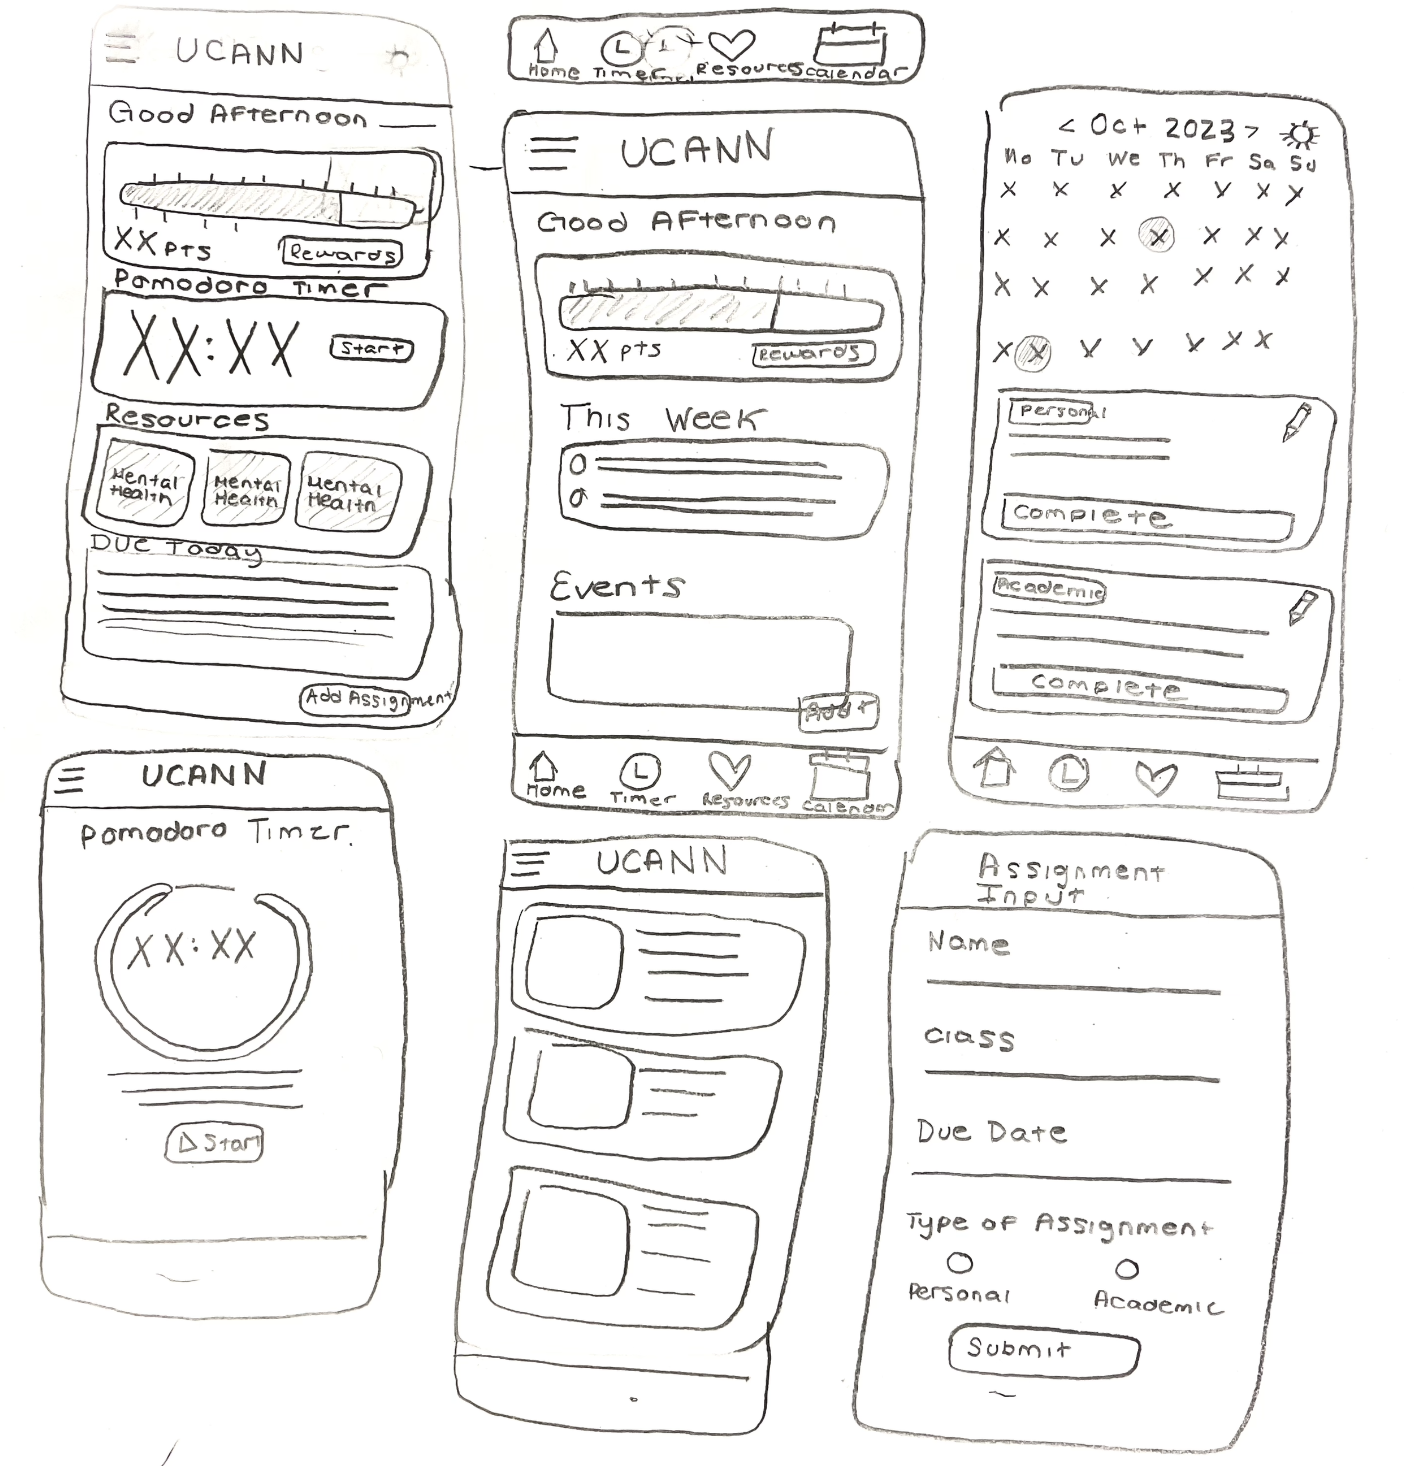 UCANN
Good Afternoon
XX pts
Rewards
Pomodoro Timer
XX:XX
Start
Resources
Mental Health
Mental Health
Mental Health
Due Today
Add Assignment
Home Timer Resources Calendar
UCANN
Good Afternoon
XX pts
Rewards
This Week
Events
Add +
Home Timer Resources Calendar
< Oct 2023 >
Mo Tu We Th Fr Sa Su
X X X X X X X
X X X X X X X
X X X X X X X
X X X X X X X
Personal
Complete
Academic
Complete
UCANN
Pomodoro Timer.
XX:XX
Start
UCANN
Assignment
Input
Name
Class
Due Date
Type of Assignment
Personal
Academic
Submit